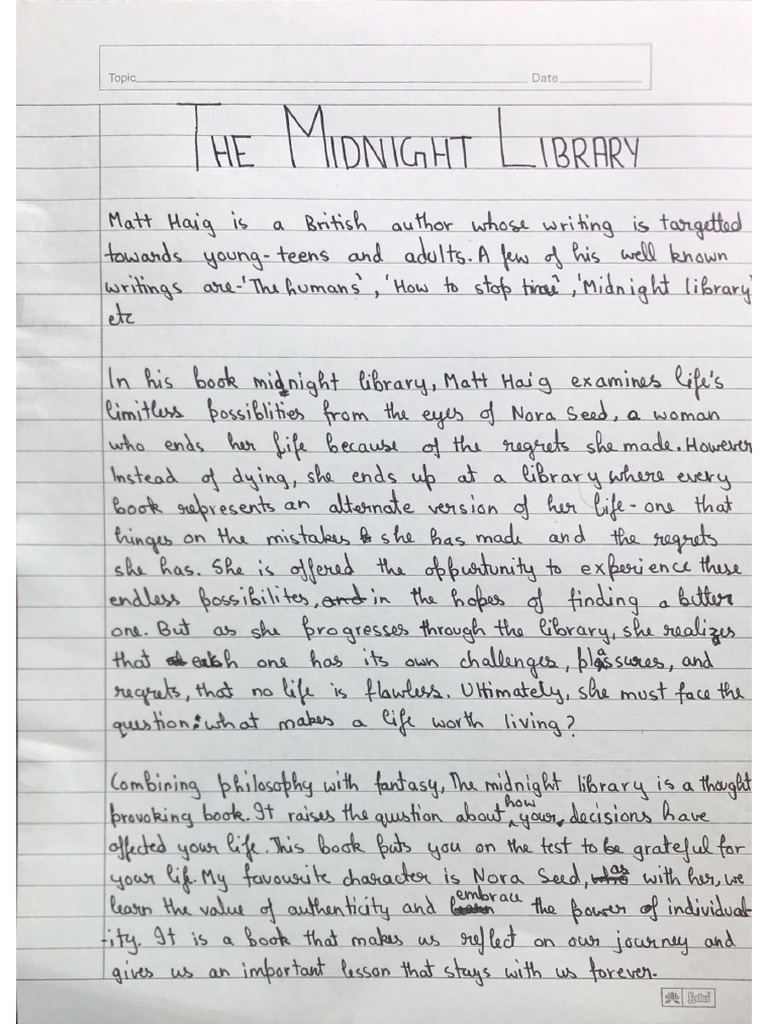 Topic Date
THE MIDNIGHT LIBRARY
Matt Haig is a British author whose writing is targetted
towards young-teens and adults. A few of his well known
writings are-'The humans', 'How to stop time', 'Midnight library'
etc
In his book midnight library, Matt Haig examines life's
limitless possiblities from the eyes of Nora Seed, a woman
who ends her life because of the regrets she made. However
Instead of dying, she ends up at a library where every
book represents an alternate version of her life - one that
hinges on the mistakes she has made and the regrets
she has. She is offered the oppurtunity to experience these
endless possibilites, and in the hopes of finding a better
one. But as she progresses through the library, she realizes
that each one has its own challenges, pleasures, and
regrets, that no life is flawless. Ultimately, she must face the
question: what makes a life worth living?
Combining philosophy with fantasy, The midnight library is a thought
provoking book. It raises the question about how your decisions have
affected your life. This book puts you on the test to be grateful for
your life. My favourite character is Nora Seed, as with her, we
learn the value of authenticity and embrace the power of individual
-ity. It is a book that makes us reflect on our journey and
gives us an important lesson that stays with us forever.